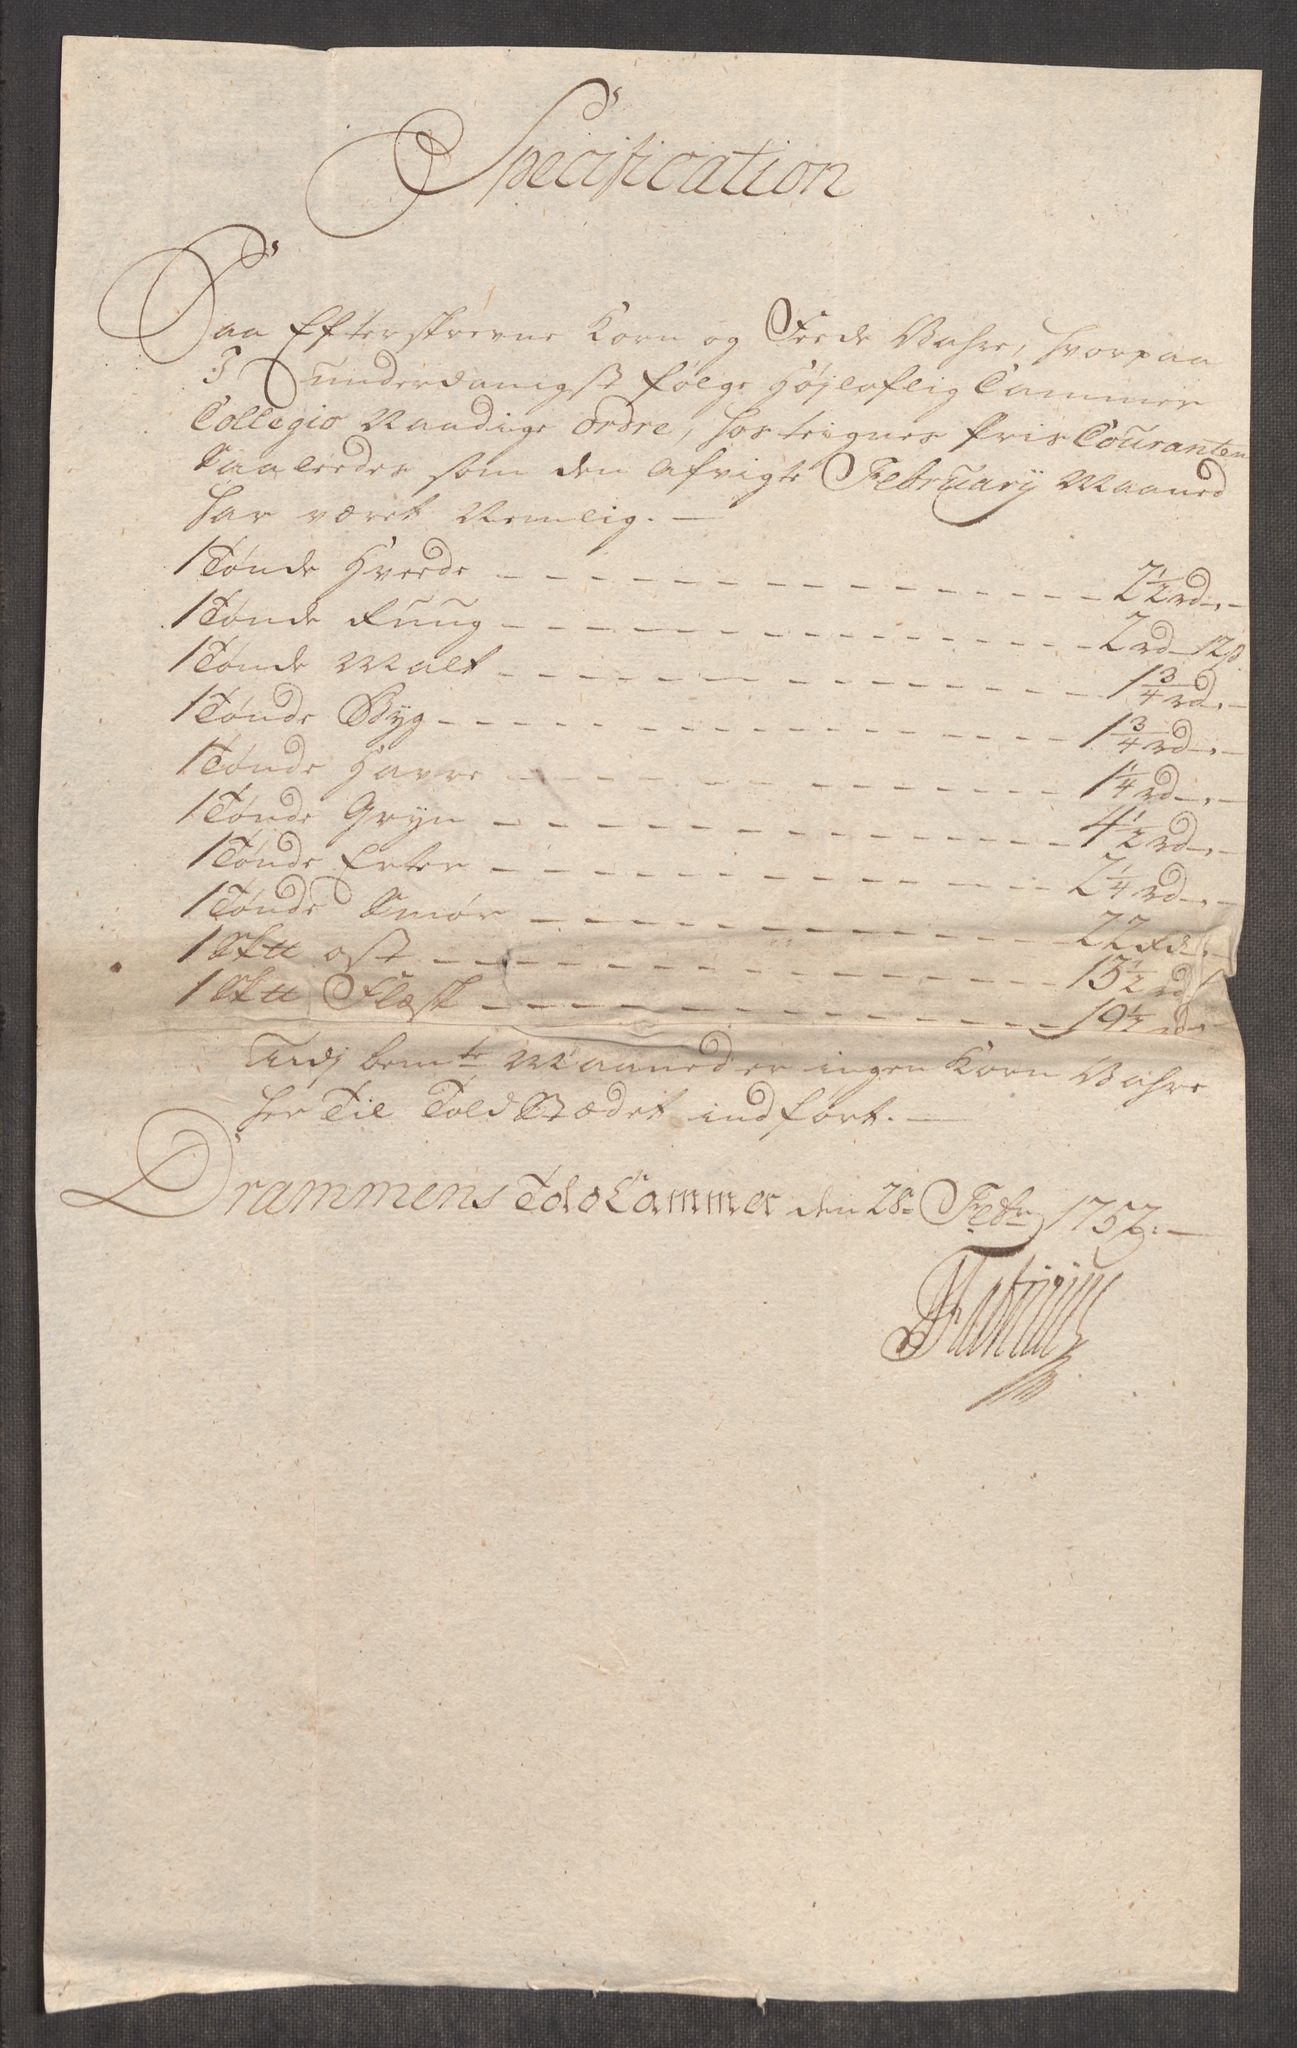 Specification
Paa Efterskrevne Korn og Feede Vahre, hvorpaa
I underdanigst følge Højloflig Cammer
Collegio Naadige ordre, hosteignes Pris Couranten
Saaleedes som den afvigte February Maaned
har været Nemlig. —
1 Tønde Hveede - - - - 2½ rd. -
1 Tønde Ruug - - - - 2 rd 12 s
1 Tønde Malt - - - - 1¾ rd. -
1 Tønde Byg - - - - 1¾ rd. -
1 Tønde Havre - - - - 1¼ rd. -
1 Tønde Gryn - - - - 4½ rd. -
1 Tønde Erter - - - - 2¼ rd. -
1 Tønde Smør - - - - 22 rd. -
1 S℔ ost - - - - 13½ rd
1 S℔ Flæsk - - - - 19½ rd. -
Udj bemte Maaned er ingen Korn Vahre
her Til Told Stædet indført. —
Drammens Told Cammer den 28de Febr 1752. —